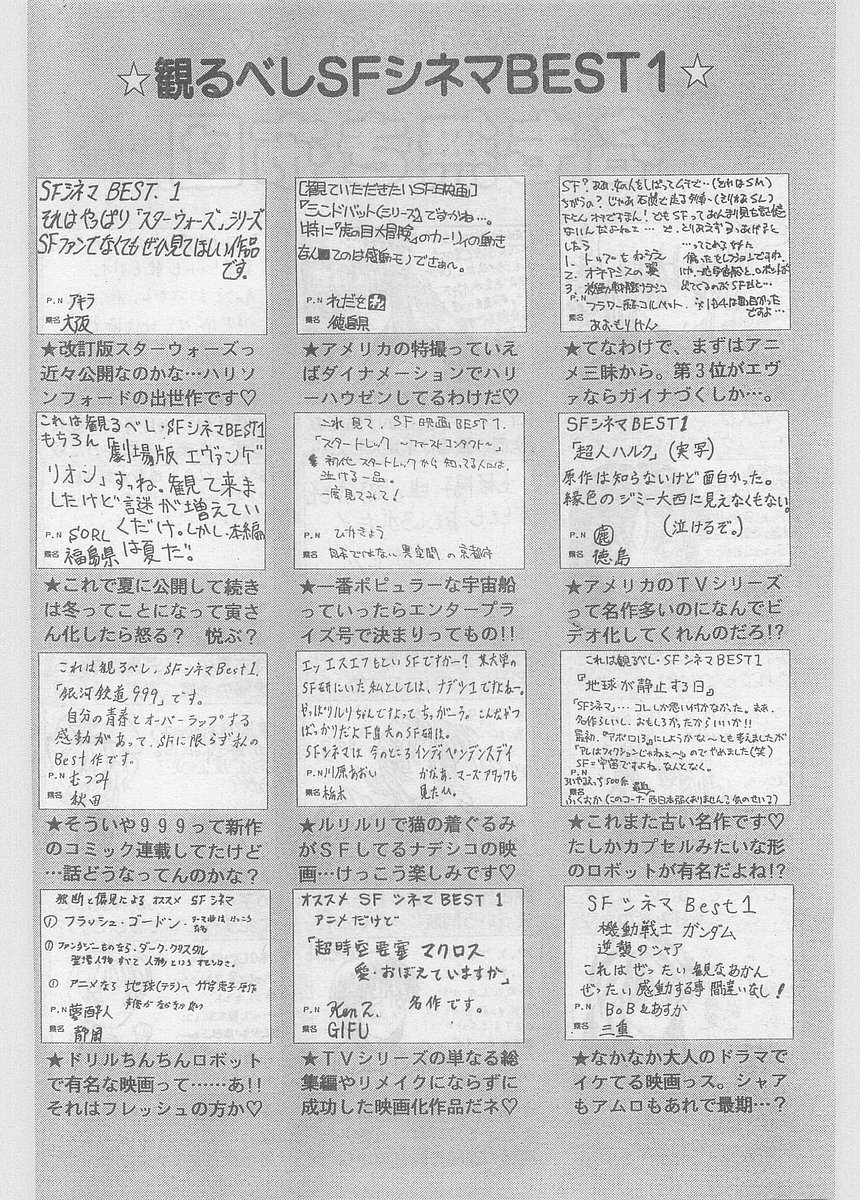 ☆観るべしSFシネマBEST1☆
SFシネマ BEST.1
それはやっぱり「スターウォーズ」シリーズ
SFファンでなくてもぜひ見てほしい作品
です。
P.N アキラ
県名 大阪
★改訂版スターウォーズっ
近々公開なのかな…ハリソ
ンフォードの出世作です♡
[観ていただきたいSF映画]
『シンドバット(シリーズ)』ですかね…。
特に『虎の目大冒険』のカーリィの動き
は感動モノでさぁん。
P.N れだ女
県名 徳島県
★アメリカの特撮っていえ
ばダイナメーションでハリ
ーハウゼンしてるわけだ♡
しょう
1. トップをねらえ
2. オネアミスの翼
3.
フラワー
あおもりけん
★てなわけで、まずはアニ
メ三昧から。第３位がエヴ
ァならガイナづくしか…。
これは観るべし・SFシネマBEST1
もちろん「劇場版 エヴァンゲ
リオン」すっね。観て来ま
したけど謎が増えてい
くだけ。しかし・本編
は夏だ。
P.N SORL
県名 福島県
★これで夏に公開して続き
は冬ってことになって寅さ
ん化したら怒る？　悦ぶ？
これ見て、SF映画BEST1.
「スタートレック ～ファーストコンタクト～」
初代スタートレックから知ってる人には、
泣ける一品。
一度見てみて！
P.N ひかきょう
県名 日本ではない異空間の京都府
★一番ポピュラーな宇宙船
っていったらエンタープラ
イズ号で決まりってもの!!
SFシネマBEST1
「超人ハルク」(実写)
原作は知らないけど面白かった。
緑色のジミー大西に見えなくもない。
(泣けるぞ。)
P.N 鹿
県名 徳島
★アメリカのＴＶシリーズ
って名作多いのになんでビ
デオ化してくれんのだろ!?
これは観るべし、SFシネマBest1.
「銀河鉄道999」です。
自分の青春とオーバーラップする
感動があって、SFに限らず私の
Best作です。
P.N むつみ
県名 秋田
★そういや９９９って新作
のコミック連載してたけど
…話どうなってんのかな？
エッエスエフもといSFですかー？某大学の
SF研にいた私としては、ナデシコですよねー。
やっぱりルリちゃんですよってちっがーう。こんなやつ
ばっかりだよF良大のSF研は。
SFシネマは今のところインディペンデンスデイ
かなぁ、マーズアタックも
見たい。
P.N 川原あおい
県名 栃木
★ルリルリで猫の着ぐるみ
がＳＦしてるナデシコの映
画…けっこう楽しみです♡
これは観るべし・SFシネマBEST1
『地球が静止する日』
「SFシネマ」…コレしか思い付かなかった。まあ、
名作らしいし、おもしろかったからいいか!!
最初、『アポロ13』にしようかな～とも考えましたが
「アレはフィクションじゃねぇ～」のでやめました(笑)
SF=宇宙ですよね、なんとなく。
P.N
県名 ふくおか
★これまた古い名作です♡
たしかカプセルみたいな形
のロボットが有名だよね!?
独断と偏見による オススメ SFシネマ
① フラッシュ・ゴードン・テーマ曲はけっこう有名
① ファンタジーものなら、ダーク・クリスタル
登場人物すべて人形というすばらしさ。
① アニメなら 地球(テラ)へ 竹宮恵子原作
声優がなかなか良い
P.N 夢酔人
県名 静岡
★ドリルちんちんロボット
で有名な映画って……あ!!
それはフレッシュの方か♡
オススメ SFシネマBEST1
アニメだけど
「超時空要塞 マクロス
愛・おぼえていますか」
名作です。
P.N KenZ.
県名 GIFU
★ＴＶシリーズの単なる総
集編やリメイクにならずに
成功した映画化作品だネ♡
SFシネマBest1
機動戦士ガンダム
逆襲のシャア
これはぜったい観なあかん
ぜったい感動する事間違いなし！
P.N BoB&あすか
県名 三重
★なかなか大人のドラマで
イケてる映画っス。シャア
もアムロもあれで最期…？